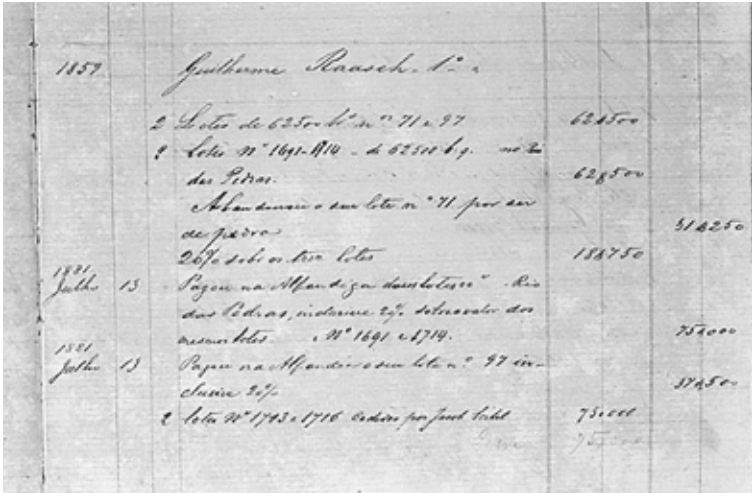 1859 Guilherme Raasch 1º
2 Lotes de 62500 bº nºs 71 e 97 62$500
2 Lotes Nº 1691 1714 - de 62500 b.q. no Rio
das Pedras. 62$500
Abandonou o seu lote nº 71 por ser
de pedra 31$250
20% sobre os tres lotes 18$750
1881
Julho 13 Pagou na Alfandega lotes nº Rio
das Pedras, inclusive 20% sobre o valor dos
mesmos lotes Nº 1691 e 1714. 75$000
1881
Julho 13 Pagou na Alfandega o seu lote nº 97 in-
clusive 20% 37$500
2 lotes Nº 1713 e 1716 cedidos por Jacob 75$000